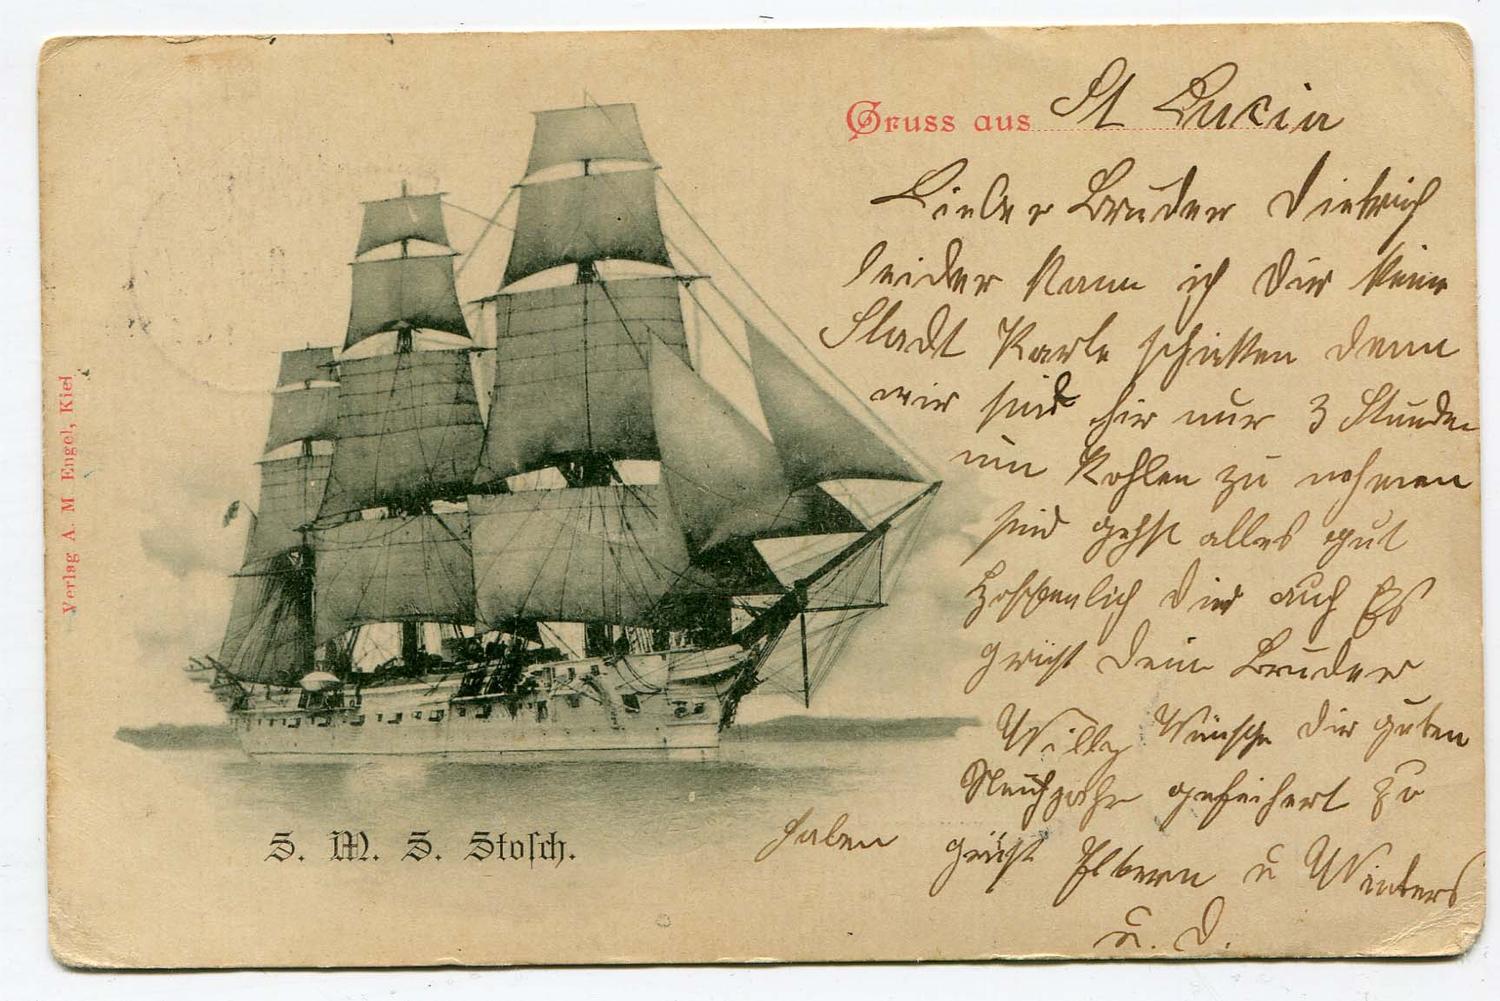 Gruss aus St Lucia
Lieber Bruder Dietrich
leider kann ich dir keine
Stadt Karte schikken denn
wir sind hir nur 3 Stunden
um Kohlen zu nehmen
sind gehst alles gut
Hoffenlich dir auch Es
grüst dein Bruder
Willy Wünsche dir guten
Neuhjahr gefeihert zu
haben grüst Eltern u Winters
u. D.
S. M. S. Stosch.
Verlag A. M Engel, Kiel